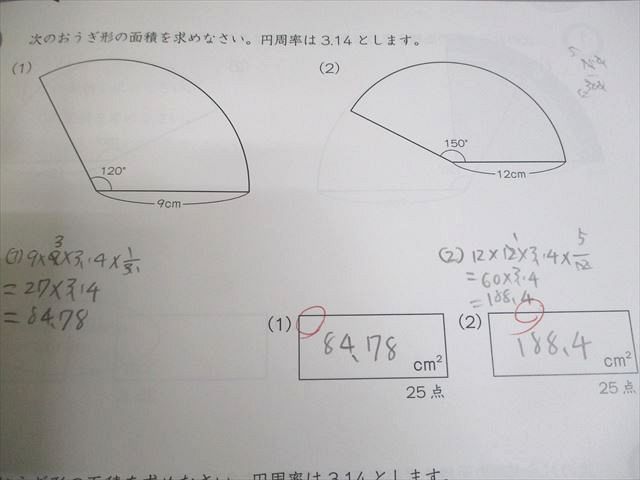 次のおうぎ形の面積を求めなさい。円周率は3.14とします。
(1)
120°
9cm
(2)
150°
12cm
(1) 9×9×3.14×1/3
=27×3.14
=84.78
(2) 12×12×3.14×5/12
=60×3.14
=188.4
(1) 84.78 cm²
25点
(2) 188.4 cm²
25点
うぎ形の面積を求めなさい。円周率は3.14とします。